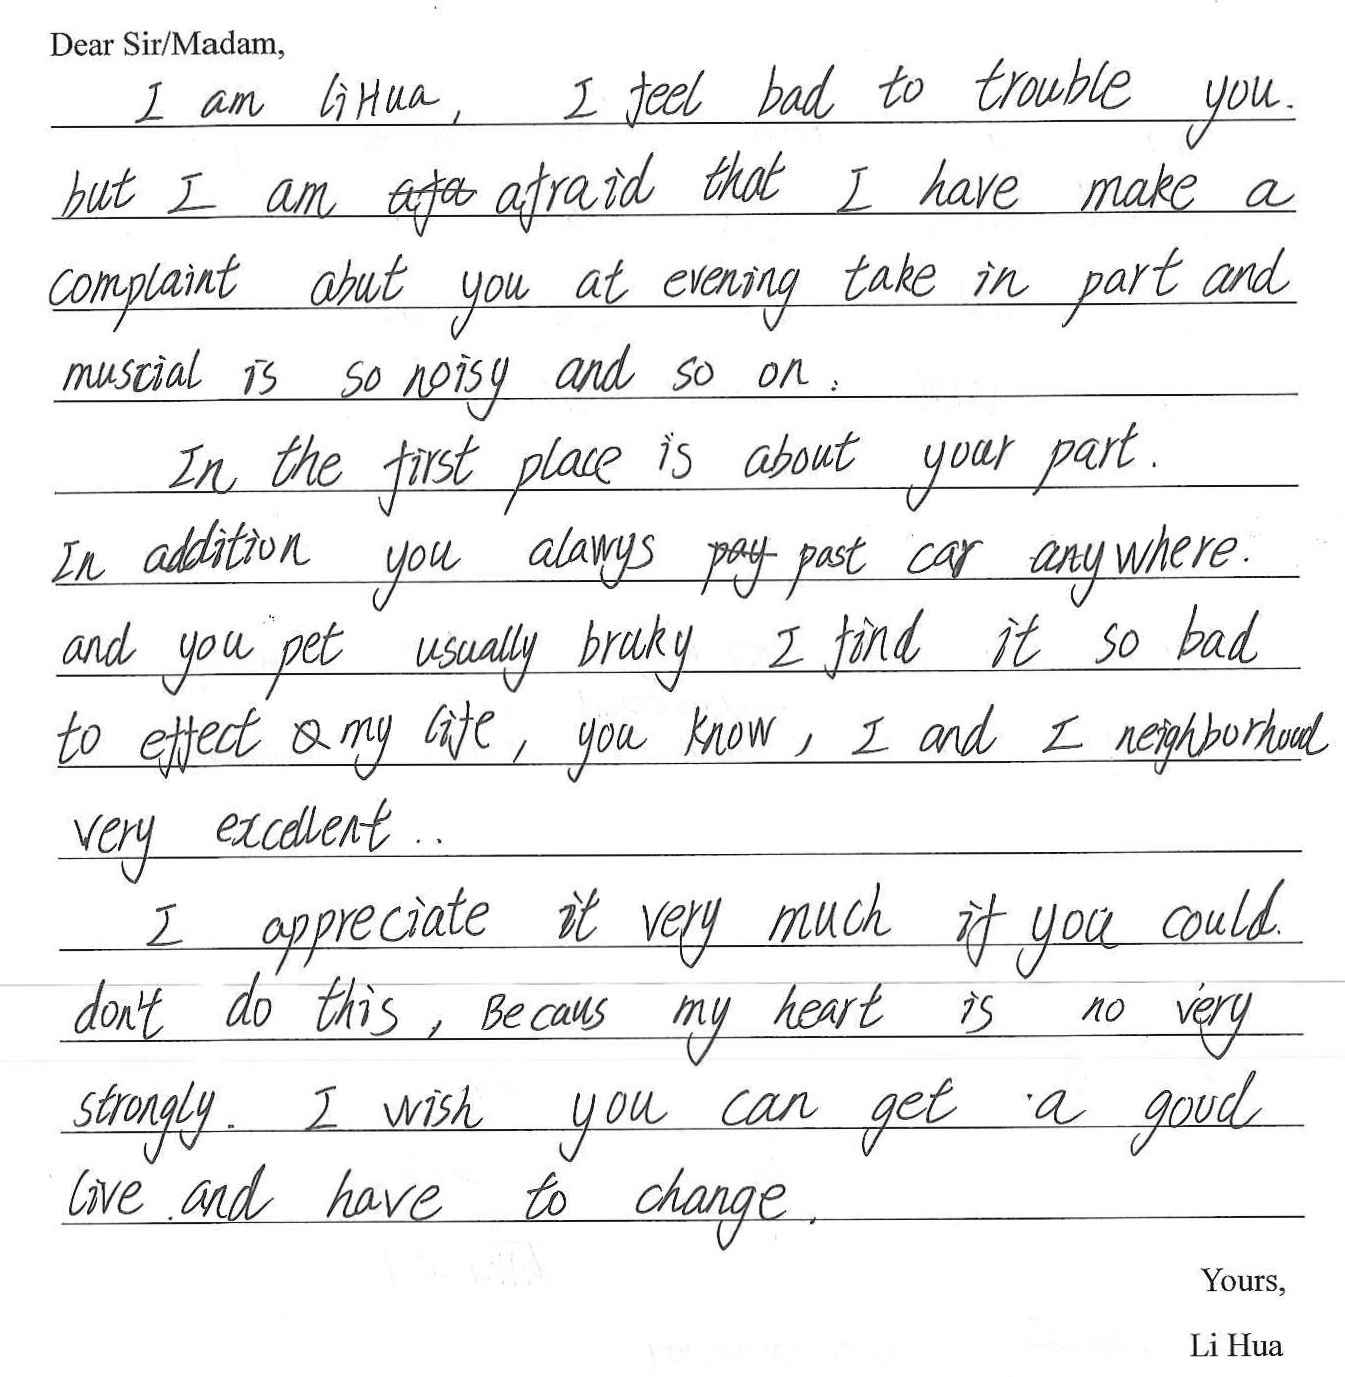 Dear Sir/Madam,
I am li Hua, I feel bad to trouble you.
but I am afraid that I have make a
complaint abut you at evening take in part and
muscial is so noisy and so on.
In the first place is about your part.
In addition you alawys past car anywhere.
and you pet usually bruky I find it so bad
to effect my life, you know, I and I neighborhood
very excellent..
I appreciate it very much if you could.
don't do this, Becaus my heart is no very
strongly. I wish you can get a good
live and have to change.
Yours,
Li Hua